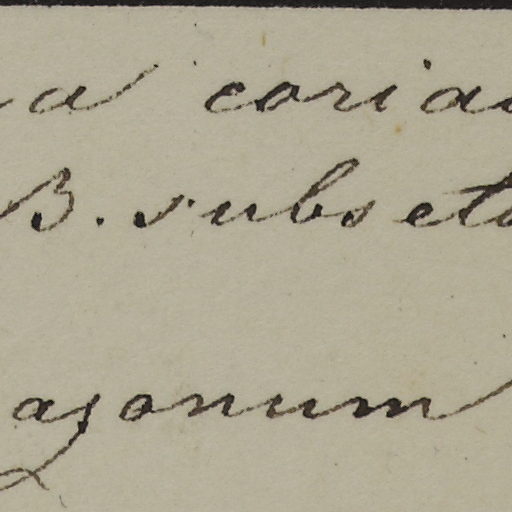 a coria
B. subset
agonum